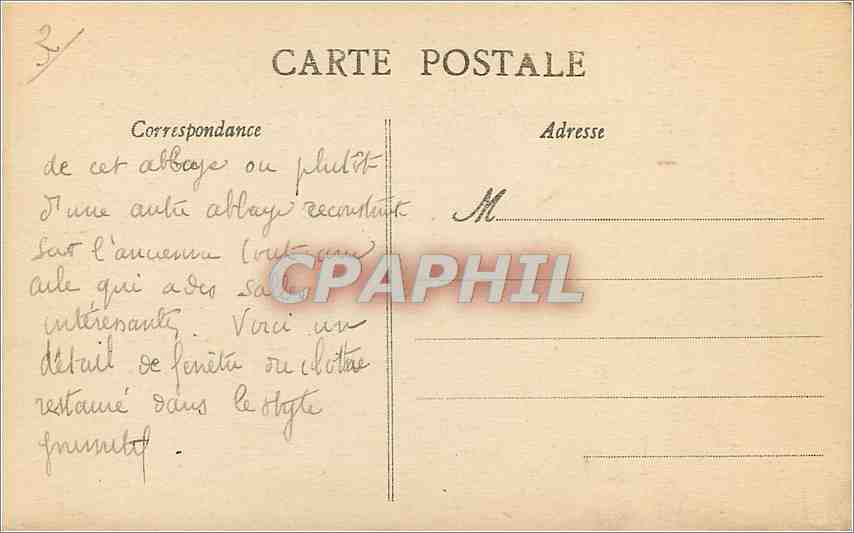 3
CARTE POSTALE
Correspondance
Adresse
de cet abbaye ou plutôt
d'une autre abbaye reconstruit
sur l'ancienne
aile qui a des salles
intéressantes. Voici un
détail de fenêtre ou cloître
restauré dans le style
primitif.
M
CPAPHIL